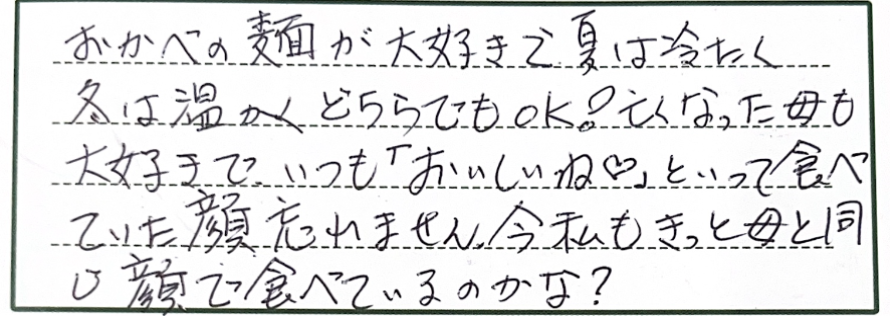 おかべの麺が大好きで夏は冷たく
冬は温かくどちらでもOK!亡くなった母も
大好きで、いつも「おいしいね♡」といって食べ
ていた顔忘れません。今私もきっと母と同
じ顔で食べているのかな?